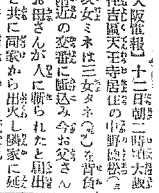 大阪電報】十二日朝二時頃大阪
天王寺區天王寺居住の中野陸松
次女ミネは三女タネ(乞)を背負
附近の交番に駈込み今お父さん
お母さんが人に斬られたと届出
共に同家から出火し隣家に延